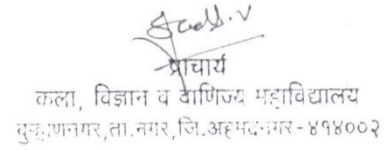 प्राचार्य
कला, विज्ञान व वाणिज्य महाविद्यालय
ता.नगर, जि.अहमदनगर - ४१४००२